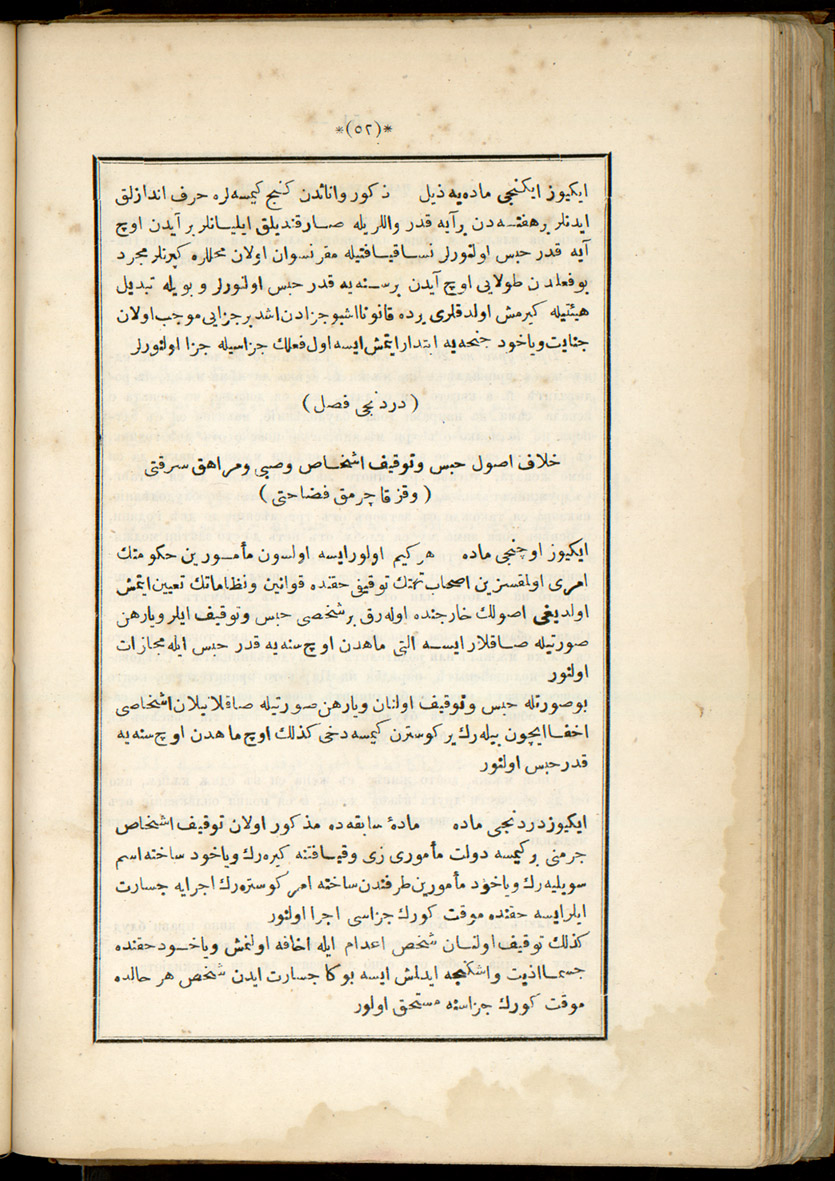 *(٥٢)*
ایکیوز ایکنجی ماده‌یه ذیل ذکور واناثدن کنج کیمسه‌لره حرف اندازلق
ایدنلر برهفته‌دن برآیه قدر واللریله صارقندیلق ایلیانلر برآیدن اوچ
آیه قدر حبس اولنورلر نساقیافتیله مقر نسوان اولان محللره کیرنلر مجرد
بوفعلدن طولایی اوچ آیدن برسنه‌یه قدر حبس اولنورلر و بویله تبدیل
هیئتیله کیرمش اولدقلری یرده قانونا اشبو جزادن اشد برجزایی موجب اولان
جنایت ویاخود جنحه‌یه ابتدار ایتمش ایسه اول فعلك جزاسیله جزا اولنورلر
(دردنجی فصل)
خلاف اصول حبس وتوقیف اشخاص وصبی ومراهق سرقتی
(وقز قاچرمق فضاحتی)
ایکیوز اوچنجی ماده هرکیم اولورایسه اولسون مأمورین حکومتك
امری اولمقسزین اصحاب تهمتك توقیفی حقنده قوانین ونظاماتك تعیین ایتمش
اولدیغی اصولك خارجنده اوله‌رق برشخصی حبس وتوقیف ایلر ویارهن
صورتیله صاقلارایسه التی ماهدن اوچ سنه‌یه قدر حبس ایله مجازات
اولنور
بوصورتله حبس وتوقیف اولنان ویارهن صورتیله صاقلانیلان اشخاصی
اخفا ایچون بیله‌رك یر کوسترن کیمسه دخی کذلك اوچ ماهدن اوچ سنه‌یه
قدرحبس اولنور
ایکیوزدردنجی ماده مادهٔ سابقه‌ده مذکور اولان توقیف اشخاص
جرمنی برکیمسه دولت مأموری زی وقیافتنه کیره‌رك ویاخود ساخته اسم
سویلیه‌رك ویاخود مأمورین طرفندن ساخته امر کوستره‌رك اجرایه جسارت
ایلرایسه حقنده موقت کورك جزاسی اجرا اولنور
کذلك توقیف اولنان شخص اعدام ایله اخافه اولنمش ویاخود حقنده
جسما اذیت واشکنجه ایدلمش ایسه بوکا جسارت ایدن شخص هر حالده
موقت کورك جزاسنه مستحق اولور